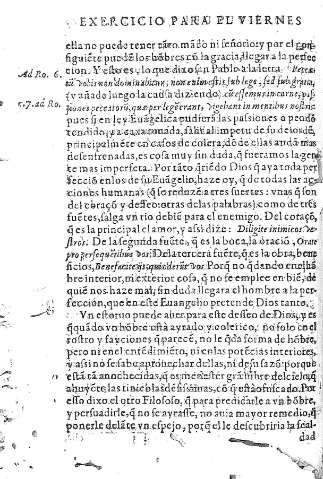 EXERCICIO PARA EL VIERNES
ella no puede tener tãto mãdo ni señorio; y por el consi-
guiẽte puedẽ los hõbres cõ la gracia, llegar a la perfec-
Ad Ro. 6.
cion. Y esto es, lo que dixo san Pablo a la letra. Pecca-
tũ vobis non dominabitur, non enim estis sub lege, sed sub gratia,
1.7. ad Ro.
(y añade luego la causa diziendo) cũ essemus in carne, passiones peccatorũ, que per legẽ erant, vigebant in mentibus nostris
pues si en ley Euãgelica pudiera las passiones a pendo
principalmẽte en casos de colera, dõde ellas andã mas
desenfrenadas, es cosa muy sin duda, q̃ fueramos la gente
mas imperfeta. Por tãto quiẽdo Dios q̃ aya toda per
feció en los de su Euãgelio, haze oy, q̃ de todas las ac-
ciones humanas (q̃ se reduzẽ a tres fuẽtes: vnas q̃ son
del coraçõ y desseo: otras de las palabras) como de tres
fuẽtes, salga vn rio de biẽ para el enemigo. Del coraçõ,
q̃ es la principal el amor, y assi dize: Diligite inimicos ve-
stros. De la segunda fuẽte, q̃ es la boca, la oraciõ, Orate
pro persequẽtibus vos: De la tercera fuẽte, q̃ es la obra, bene
ficios, Benefacite his qui oderũt vos. Porq̃ no q̃dando en el hõ-
bre interior, ni exterior cosa, q̃ no se emplee en biẽ, de
quiẽ nos haze mal; sin duda llegara el hombre a la per-
fecciõn, que en este Euangelio pretende Dios tanto.
Vn estoruo puede auer para este desseo de Dios, y es
q̃ quãdo vn hõbre està ayrado y colerico, no solo en el
rostro y fayciones q̃ parecẽ, no le q̃da forma de hõbre,
pero ni en el entẽdimiẽto, ni en las potẽcias interiores,
y assi no se sabe aprouechar dellas, ni de si razõ: porque
està tã anochecidas, q̃ es menester grã lũbre del cielo, q̃
ahuyẽte las tinieblas de si mismas, cõ q̃ està ofuscado. Por
esso dixo el otro Filosofo, q̃ para predicarle a vn hõbre,
y persuadirle, q̃ no se ayrasse, no auia mayor remedio, q̃
ponerle delãte vn espejo, porq̃ el le descubriria la feal-
dad